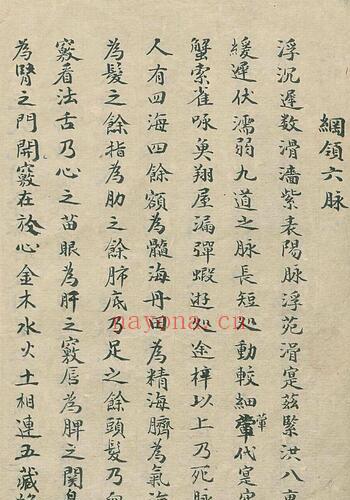 綱領六脉
浮沉遲数滑濇紫表陽脉浮芤滑寔茲緊洪八
緩遲伏濡弱九道之脉長短動較細牢代寔
蟹索雀啄奐翔屋漏彈蝦逰人途梓以上乃死脉
人有四海四餘額為髓海丹田為精海臍為氣海
為髮之餘指為肋之餘肺底乃足之餘頭髮乃
竅看法舌乃心之苗眼為肝之竅唇為脾之関
為腎之門開竅在於心金木水火土相連五藏
nayona.cn